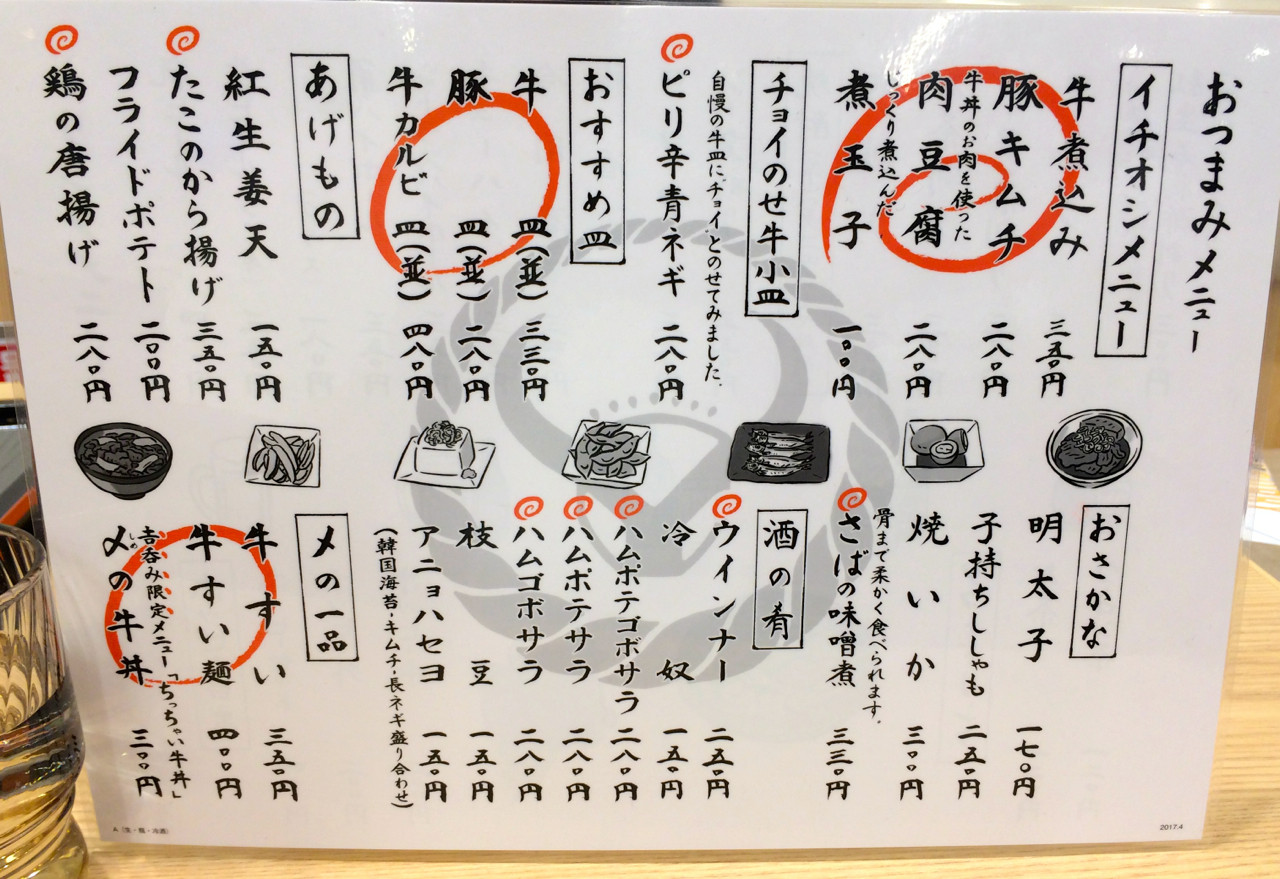 おつまみメニュー
イチオシメニュー
牛煮込み 三五〇円
豚キムチ 二八〇円
牛丼のお肉を使った
肉豆腐 二八〇円
じっくり煮込んだ
煮玉子 一〇〇円
チョイのせ牛小皿
自慢の牛皿に、チョイ、とのせてみました。
ピリ辛青ネギ 二八〇円
おすすめ皿
牛皿(並) 三三〇円
豚皿(並) 二八〇円
牛カルビ皿(並) 四八〇円
あげもの
紅生姜天 一五〇円
たこのから揚げ 三五〇円
フライドポテト 二〇〇円
鶏の唐揚げ 二八〇円
おさかな
明太子 一七〇円
子持ちししゃも 二五〇円
焼いか 三〇〇円
骨まで柔かく食べられます。
さばの味噌煮 三三〇円
酒の肴
ウインナー 二五〇円
冷奴 一五〇円
ハムポテゴボサラ 二八〇円
ハムポテサラ 二八〇円
ハムゴボサラ 二八〇円
枝豆 一五〇円
アニョハセヨ 一五〇円
(韓国海苔・キムチ・長ネギ盛り合わせ)
〆の一品
牛すい 三五〇円
牛すい麺 四〇〇円
吉呑み限定メニュー「ちっちゃい牛丼」
〆の牛丼 三〇〇円
しめ
A(生・瓶・冷酒)
2017.4